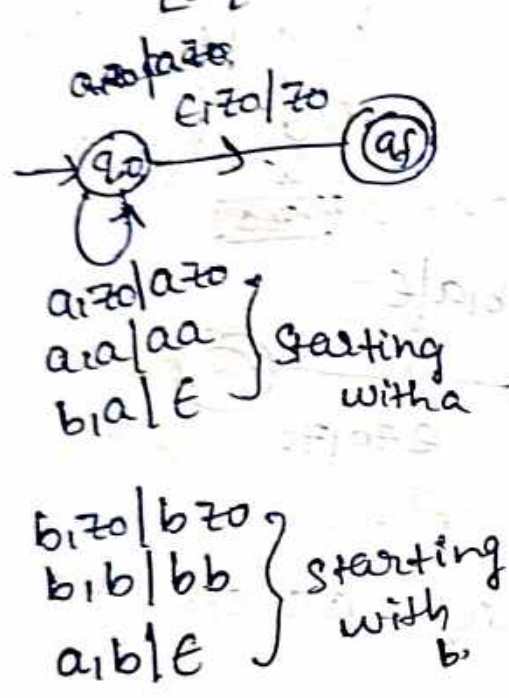 a,z0|az0
ε,z0|z0
q0
qf
a,z0|az0
a,a|aa
b,a|ε
starting
with a
b,z0|bz0
b,b|bb
a,b|ε
starting
with
b,